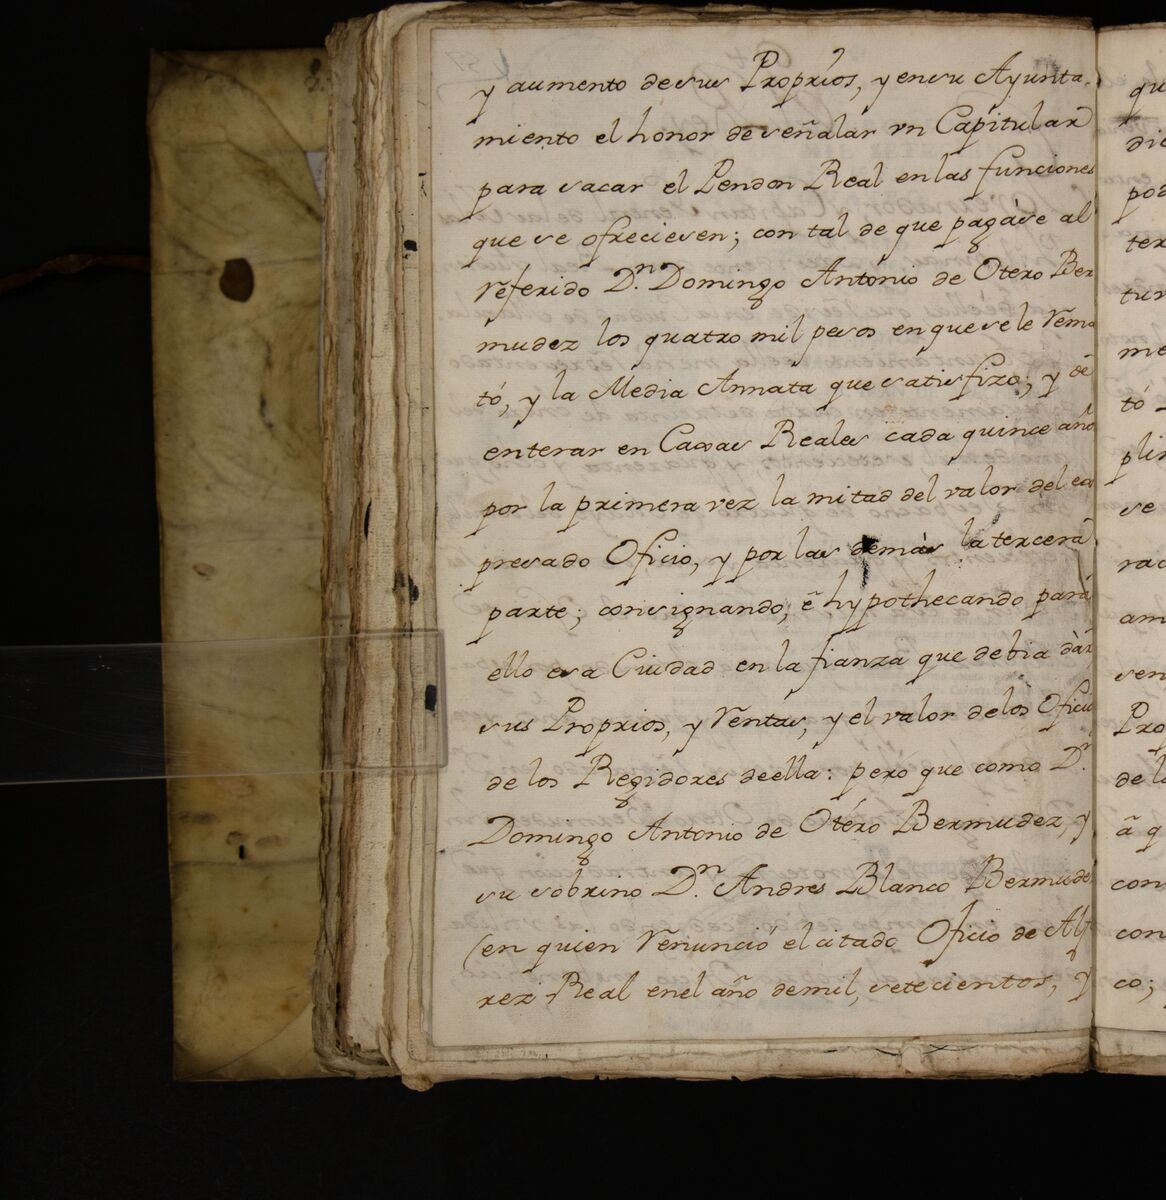 y aumento de sus Proprios, y en su Ayunta-
miento el honor de señalar vn Capitular
para sacar el Pendon Real en las funciones
que se ofreciesen; con tal de que pagáse al
referido Dn. Domingo Antonio de Otero Ber
mudez los quatro mil pesos en que se le rema
tó, y la Media Annata que satisfizo; y de
enterar en Caxas Reales cada quince año
por la primera vez la mitad del valor del ex
presado Oficio, y por las demás la tercera
parte; consignando, é hypothecando para
ello esa Ciudad en la fianza que debia dàr
sus Proprios, y rentas, y el valor de los Oficio
de los Regidores de ella: pero que como Dn.
Domingo Antonio de Otéro Bermudez, y
su sobrino Dn. Andres Blanco Bermude
(en quien renunció el citado Oficio de Alf
rez Real en el año de mil, setecientos, y
qu
dic
pod
ter
tur
me
tó
plir
se
rac
am
sen
Pro
de l
ã q
con
con
co;